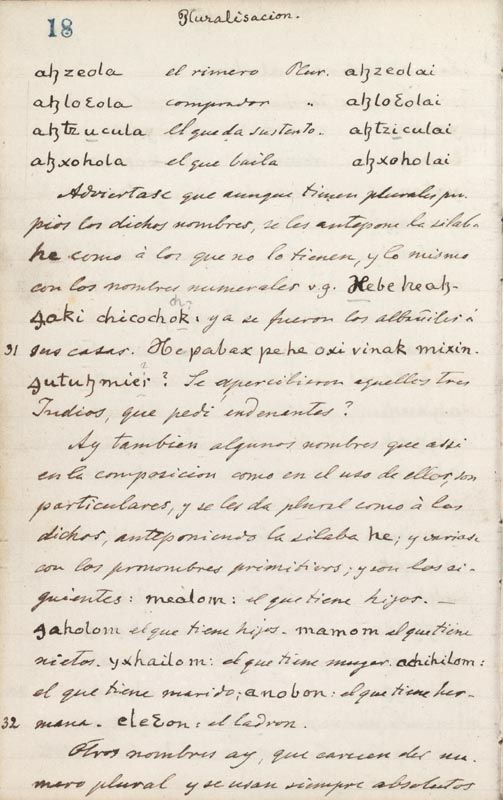 18 Pluralisacion.
aꜧzeola el rimero Plur. aꜧzeolai
aꜧloꜫola comprador „ aꜧloꜫolai
aꜧtzucula El que da sustento. aꜧtziculai
aꜧxohola el que baila aꜧxoholai
Adviertase que aunque tienen plurales pro-
pios los dichos nombres, se les antepone la silaba
he como à los que no lo tienen, y lo mismo
con los nombres numerales v.g. Xebe heaꜧ-
ꜭaki chicochok: ya se fueron los albañiles à
31 sus casas. He pabax pehe oxi vinak mixin-
ꜭutuꜧ mier? Se apercibieron aquellos tres
Indios, que pedi endenantes?
Ay tambien algunos nombres que assi
en la composicion como en el uso de ellos, son
particulares, y se les da plural como à los
dichos, anteponiendo la silaba he; y varianse
con los pronombres primitivos; y son los si-
guientes: mealom: el que tiene hijos. —
ꜭaholom el que tiene hijos. mamom el que tiene
nietos. yxhailom: el que tiene muger. achihilom:
el que tiene marido; anobon: el que tiene her-
32 mana. eleꜫon: el ladron.
Otros nombres ay, que carecen del nu-
mero plural y se usan siempre absolutos